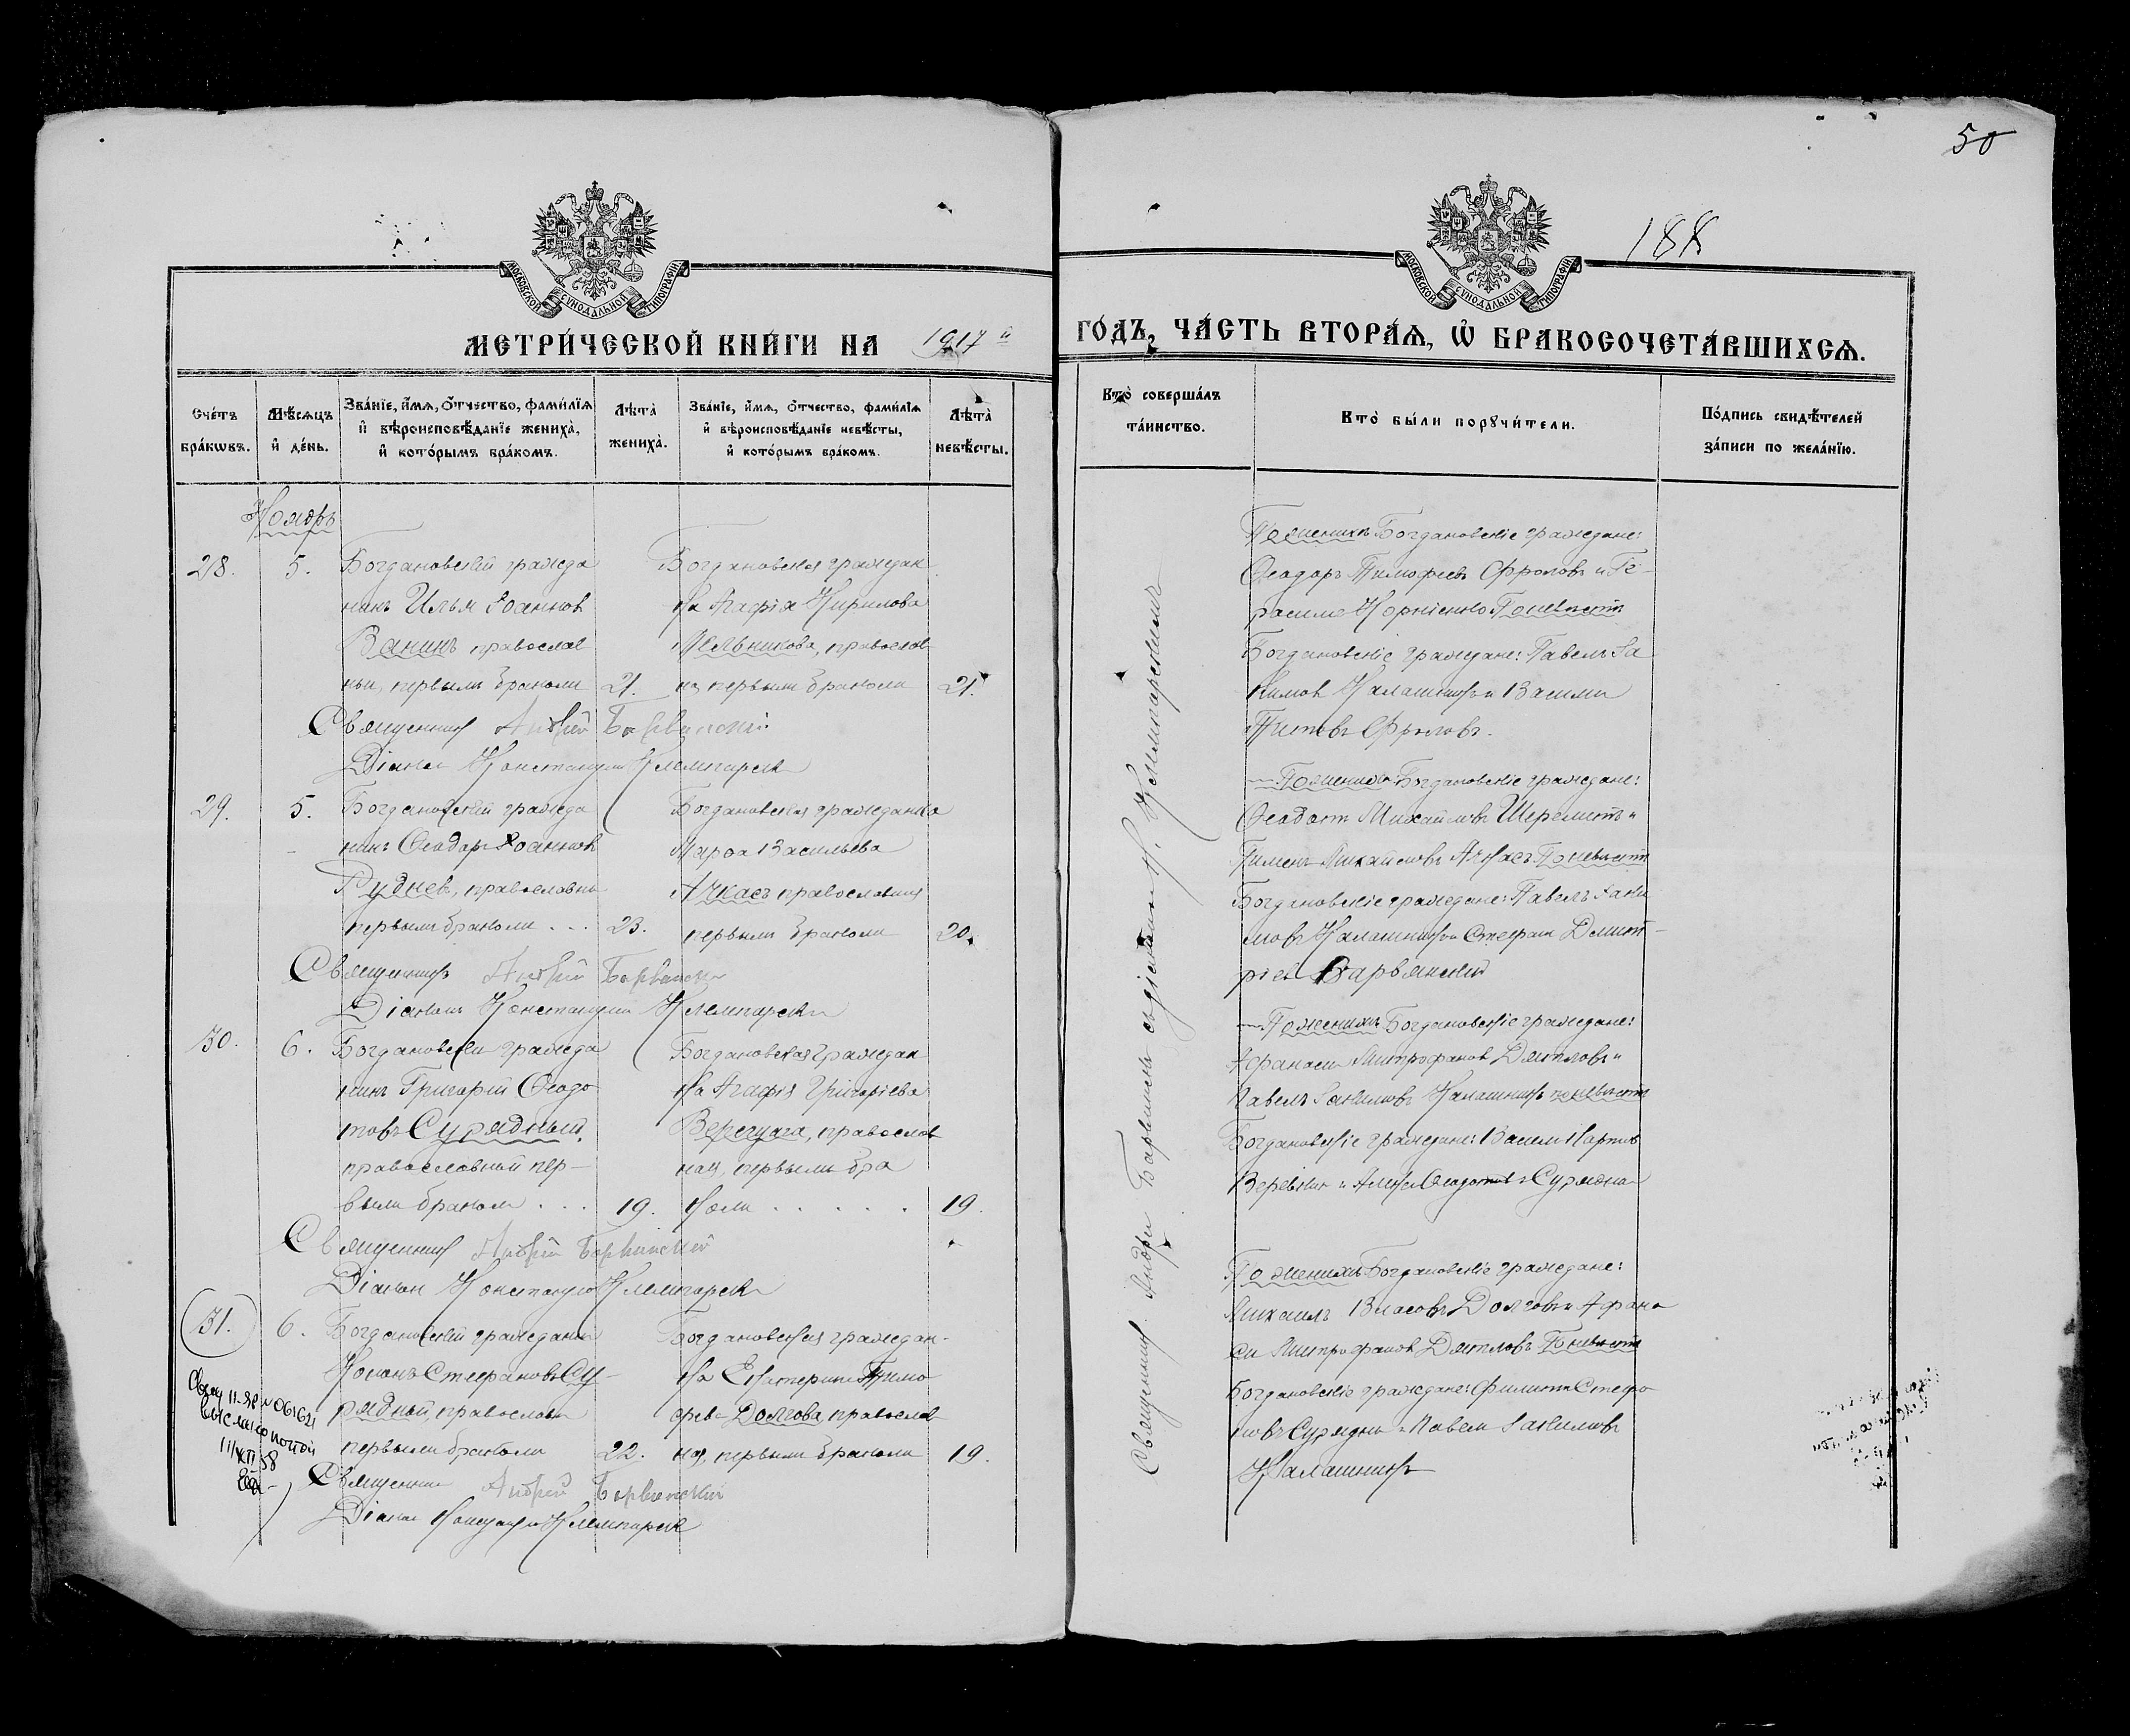 50
188
МОСКОВСКОЙ СѴНОДАЛЬНОЙ ТИПОГРАФІИ
МОСКОВСКОЙ СѴНОДАЛЬНОЙ ТИПОГРАФІИ
МЕТРИ́ЧЕСКОЙ КНИ́ГИ НА 1917 й
ГО́ДЪ, ЧА́СТЬ ВТОРА́Ѧ, Ѡ҆ БРАКОСОЧЕТА́ВШИХСѦ.
Сче́тъ бра́кѡвъ.
Мѣ́сѧцъ и҆ де́нь.
Зва́нїе, и҆́мѧ, ѻ҆́тчество, фами́лїѧ и҆ вѣроисповѣ́данїе жениха̀, и҆ кото́рымъ бра́комъ.
Лѣ́та̀ жениха̀.
Зва́нїе, и҆́мѧ, ѻ҆́тчество, фами́лїѧ и҆ вѣроисповѣ́данїе невѣ́сты, и҆ кото́рымъ бра́комъ.
Лѣ́та̀ невѣ́сты.
Кто̀ соверша́лъ та́инство.
Кто̀ бы́ли порꙋчи́тели.
По́дпись свидѣ́телей за́писи по жела́нїю.
Ноябрь
28.
5.
Богдановскій гражда
нинъ Илья Іоаннов
Ванинъ, православ
ный, первымъ бракомъ
21.
Богдановская граждан
ка Агафія Кирилова
Мельникова, православ
ная, первымъ бракомъ
21.
Священникъ Андрей Барвинскій
Діаконъ Константинъ Клемпарскій
29.
5.
Богдановскій гражда
нинъ Ѳеодоръ Іоаннов
Руднев, православный
первымъ бракомъ . . .
23.
Богдановская гражданка
Марѳа Васильева
Ачкасъ православная
первымъ бракомъ
20.
Священникъ Андрей Барвинскій
Діаконъ Константинъ Клемпарскій
30.
6.
Богдановскій гражда
нинъ Григорій Ѳеодо
товъ Сурядный,
православный пер-
вымъ бракомъ . . .
19.
Богдановская граждан
ка Агафія Григоріева
Веречуага, православ
ная, первымъ бра
комъ . . . . .
19.
Священникъ Андрей Барвинскій
Діаконъ Константинъ Клемпарскій
31.
6.
Богдановскій гражданинъ
Кононъ Стефановъ Су-
рядный, православный
первымъ бракомъ
22.
Богдановская граждан-
ка Екатерина Тимо
феев Долгова, православ
ная, первымъ бракомъ
19.
Священникъ Андрей Барвинскій
Діаконъ Константинъ Клемпарскій
061621
почтой
58
Священникъ Андрей Барвинскій съ діакономъ К. Клемпарскимъ
По женихѣ Богдановскіе граждане:
Ѳеодоръ Тимофеевъ Фроловъ и Ге-
расимъ Корніенко По невѣстѣ
Богдановскіе граждане: Павелъ Іа
кимов Калашниковъ и Василій
Титовъ Фроловъ.
По женихѣ Богдановскіе граждане:
Ѳеодотъ Михайловъ Шереметъ и
Пименъ Михайловъ Ачкасъ По невѣстѣ
Богдановскіе граждане: Павелъ Іаки
мовъ Калашниковъ и Стефанъ Дмит-
ріев Варвянскій
По женихѣ Богдановскіе граждане:
Афанасій Митрофанов Дятловъ и
Павелъ Іакимовъ Калашниковъ по невѣстѣ
Богдановскіе граждане: Василій Карпов
Веревкинъ и Ѳеодотовъ Сурядный
По женихѣ Богдановскіе граждане:
Михаилъ Власовъ Долговъ и Афана
сій Митрофанов Дятловъ По невѣстѣ
Богдановскіе граждане: Филиппъ Стефа
новъ Сурядный и Павелъ Іакимовъ
Калашниковъ